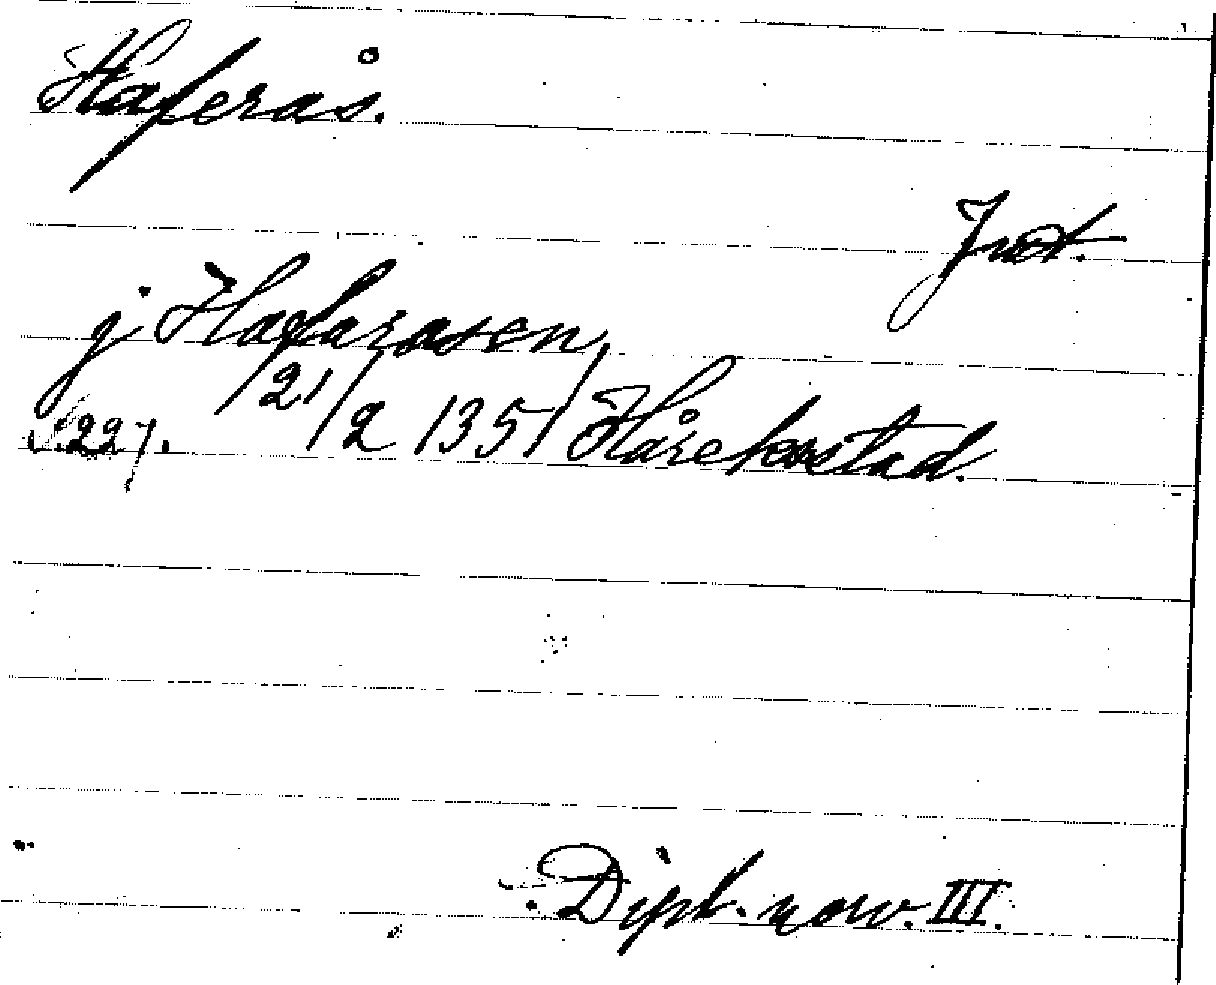 Haferås.
Jnst.
j Hafarasen,
s. 227. 21/2 1351 Hårekerstad.
Dipl. norv. III.